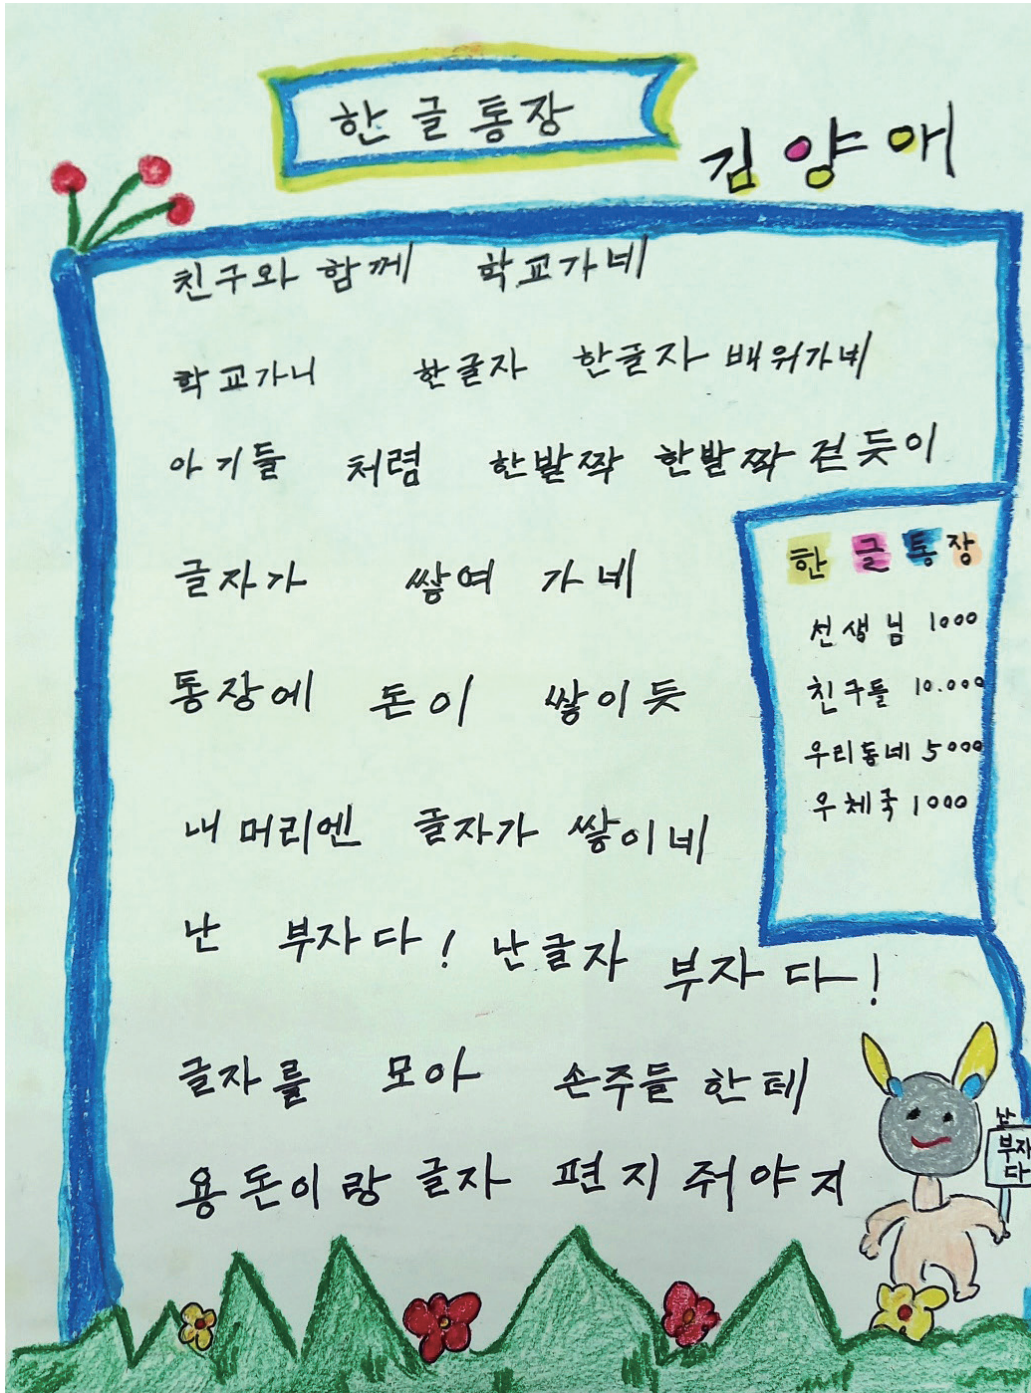 한글통장
김양애
친구와 함께 학교가네
학교가니 한글자 한글자 배워가네
아기들 처렴 한발짝 한발짝 걷듯이
글자가 쌓여 가네
통장에 돈이 쌓이듯
내 머리엔 글자가 쌓이네
난 부자다! 난글자 부자다!
글자를 모아 손주들 한테
용돈이랑 글자 편지 줘야지
한글통장
선생님 1000
친구들 10.000
우리동네 5000
우체국 1000
난
부자
다